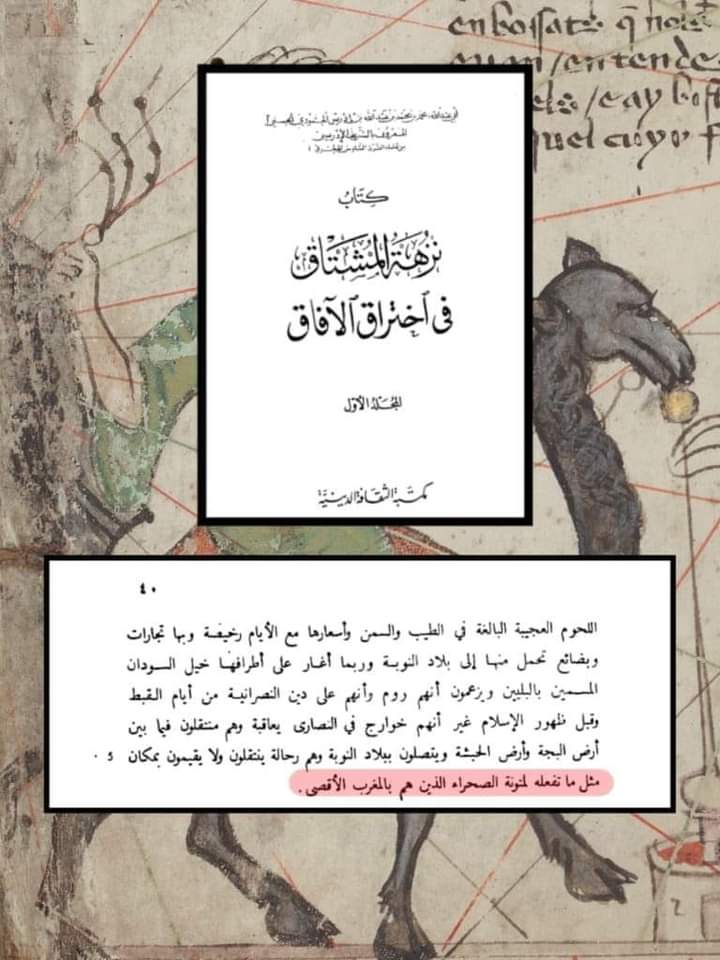 en bossats q̃ nols
entende
quel cuyo
المعروف بالشريف الإدريسي
كِتَابُ
نُزْهَةِ المُشْتَاق
فى اَختراق الآفاق
المجلد الأول
مكتبة الثقافة الدينية
٤٠
اللحوم العجيبة البالغة في الطيب والسمن وأسعارها مع الأيام رخيصة وبها تجارات
وبضائع تحمل منها إلى بلاد النوبة وربما أغار على أطرافها خيل السودان
المسمين بالبليين ويزعمون أنهم روم وأنهم على دين النصرانية من أيام القبط
وقبل ظهور الإسلام غير أنهم خوارج في النصارى يعاقبة وهم متنقلون فيما بين
أرض البجة وأرض الحبشة ويتصلون ببلاد النوبة وهم رحالة ينتقلون ولا يقيمون بمكان 5
مثل ما تفعله لمتونة الصحراء الذين هم بالمغرب الأقصى .